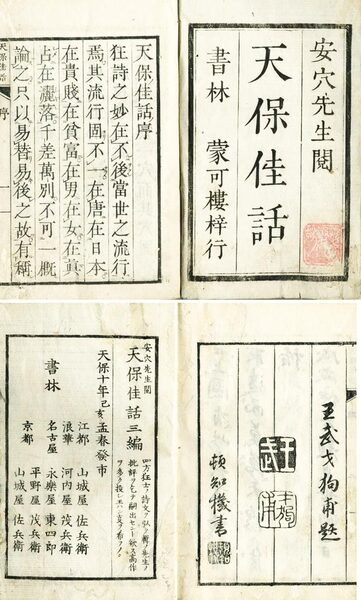 安穴先生閲
天保佳話
書林 蒙可樓梓行
天保佳話序
狂詩之妙在不後當世之流行
焉其流行固不一在唐在日本
在貴賤在貧富在男在女在眞
占在灑落千差萬別不可一概
論之只以易替易後之故有稱
天保佳話 序 一
王武戈狗甫題
頓知機書
安穴先生閲
天保佳話三編
天保十年己亥孟春發市
書林
江都 山城屋 佐兵衛
浪華 河内屋 茂兵衛
名古屋 永樂屋 東四郎
京都 平野屋 茂兵衛
山城屋 佐兵衛